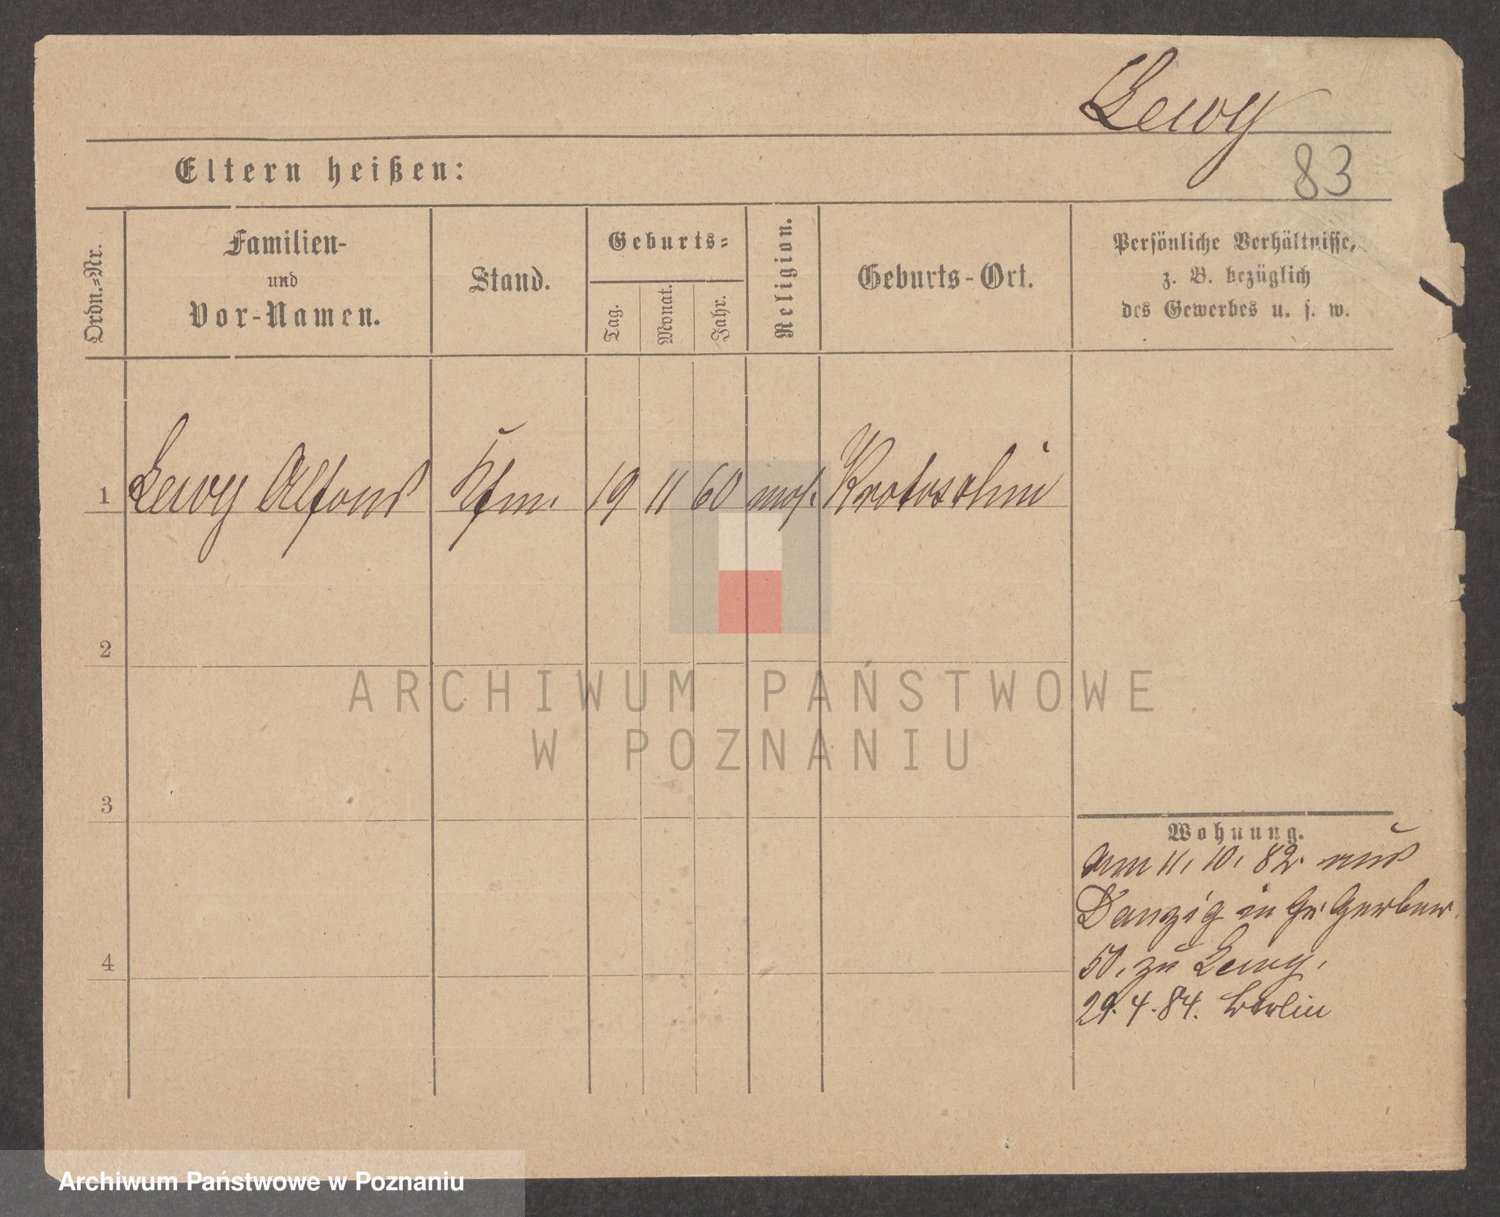 Lewy
83
Eltern heißen:
Ordn.-Nr.
Familien-
und
Vor-Namen.
Stand.
Geburts-
Tag.
Monat.
Jahr.
Religion.
Geburts-Ort.
Persönliche Verhältnisse,
z. B. bezüglich
des Gewerbes u. s. w.
1 Lewy Alfons Kfm. 19 11 60 mos. Krotoschin
2
ARCHIWUM PAŃSTWOWE
W POZNANIU
3
Wohnung.
Am 11. 10. 82. aus
Danzig in Gr. Gerber
50. zu Lewy.
4
29. 4. 84. Berlin
Archiwum Państwowe w Poznaniu